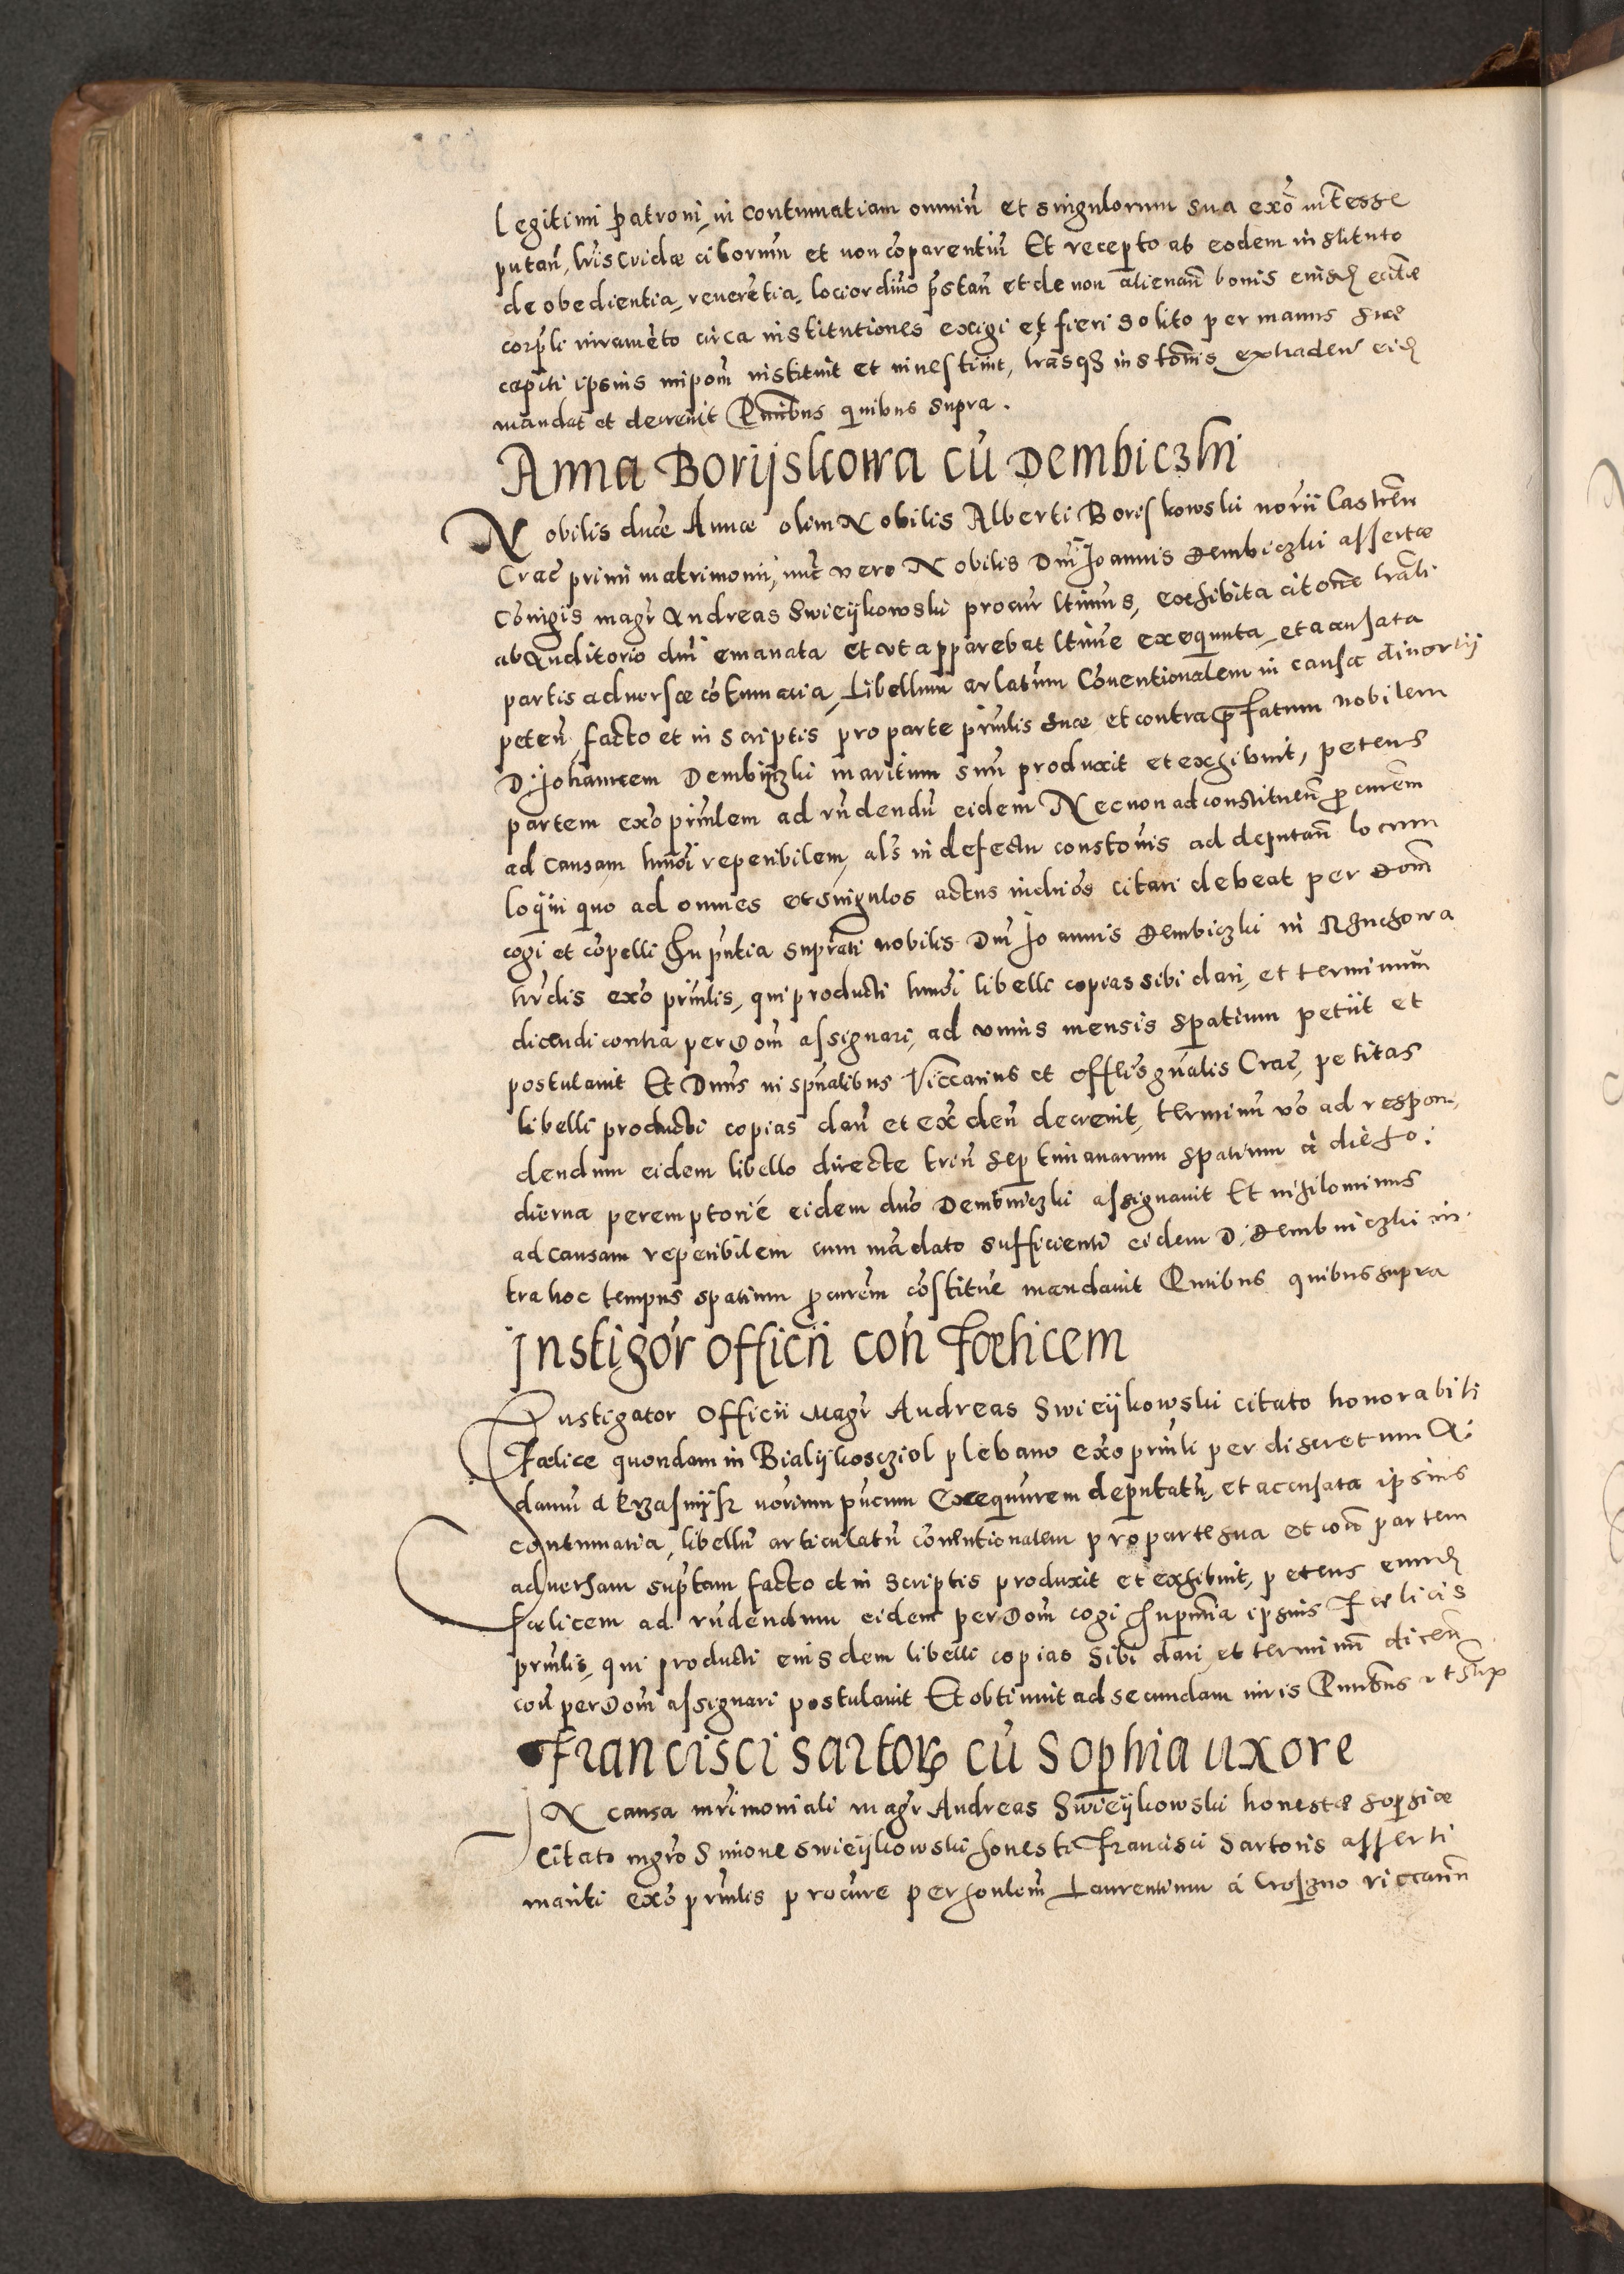 legitimi patroni, in contumatiam omniū et singulorum sua exō intesse
putan̄, lrīs cridæ citorum et non cōparentiū Et recepto ab eodem instituto
de obedientia, reuerētia, loci ordīno p̄stan̄ et de non alienan̄ bonis eiusd ecctiæ
corpłi iuramēto circa institutiones exigi et fieri solito per manus suæ
capiti ipsius impom̄ instituit et inuestiuit, lrasq insto͞nis extraden̄ eid
mandat et decreuit P̄n̄tibus quibus supra.
Anna Borijskowa cū Dembiczki
Nobilis dn̄ce Annæ olim Nobilis Alberti Boriskowski notrii Castren̄
Crac̄ primi matrimonii, nūc vero Nobilis Dn̄i Joannis Dembiczki assertæ
Cōiugis magr Andreas Swieijkowski procur ltimus, exhibita citone lrali
ab Auditorio dn̄i emanata et ut apparebat ltime exequuta et accusata
partis aduersæ cōtumatia, Libellum arlatum Cōuentionalem in causa diuortij
peten̄ facto et in scriptis pro parte prinlis suæ et contra p̄fatum nobilem
D: Johannem Dembijczki maritum suū produxit et exhibuit, petens
partem exō prinlem ad rn̄dendū eidem Nec non ad constituen̄ procurem
ad causam hmōi reperibilem, als in defectu constonis ad deputan̄ locum
loqui quo ad omnes et singulos actus indrios citari debeat per Dom̄
cogi et cōpelli In pn̄tia suprati nobilis Dn̄i Joannis Dembiczki in Rzuchowa
hrdis exō prinlis, qui producti hmōi libelli copias sibi dari, et terminum
dicendi contra per Dom̄ assignari, ad unius mensis spatium petiit et
postulauit Et Dn̄us in spūalibus Viccarius et offlis gn̄alis Crac̄, petitas
libelli producti copias dan̄ et ex den̄ decreuit, terminū vō ad respon,
dendum eidem libello directe triū septimanarum spatium a die ho:
dierna peremptorie eidem dn̄o Dembniczki assignauit Et nihilominus
ad causam reperibilem cum mādato sufficienti eidem D: Dembniczki in
tra hoc tempus spatium procurem cōstitue mandauit P̄n̄tibus quibus supra
Instigor officii con̄ Fœlicem
Instigator Officii Magr Andreas Swieijkowski citato honorabili
Fœlice quondam in Bialijkoscziol plebano exō prinli per discretum A:
damū a notrium pucum Exequurem deputatū, et accusata ipsius
contumatia, libellū articulatū conuentionalem pro parte sua et con̄ partem
aduersam suptam facto et in scriptis produxit et exhibuit, petens eund
fœlicem ad rn̄dendum eidem per Dom̄ cogi In pn̄tia ipsius Fœlicis
prinlis, qui producti eiusdem libelli copias sibi dari et terminū dicen̄
con̄ per Dom̄ assignari postulauit Et obtinuit ad secundam iuris P̄n̄tibus ut sup
Francisci sartoris cū Sophia uxore
IN causa mrimoniali magr Andreas Swieijkowski honestæ Sophiæ
citato mgro Simone Swieijkowski honesti Francisci Sartoris asserti
mariti exō prinlis procure per honlem Laurentium a Croszno viccarium